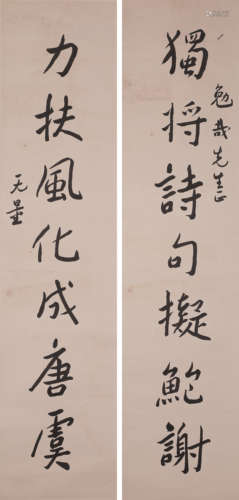 獨將詩句擬鮑謝
勉哉先生正
力扶風化成唐虞
无量